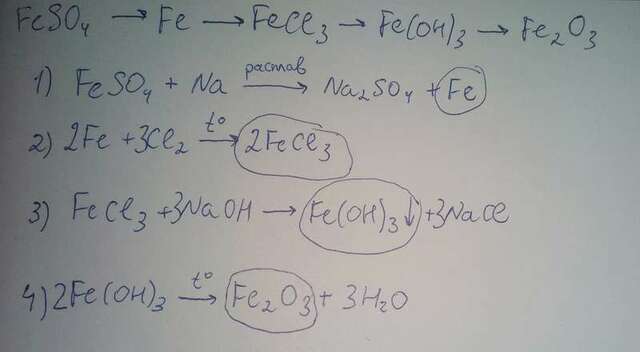 FeSO₄ → Fe → FeCl₃ → Fe(OH)₃ → Fe₂O₃
1) FeSO₄ + Na расплав → Na₂SO₄ + Fe
2) 2Fe + 3Cl₂ t° → 2FeCl₃
3) FeCl₃ + 3NaOH → Fe(OH)₃↓ + 3NaCl
4) 2Fe(OH)₃ t° → Fe₂O₃ + 3H₂O